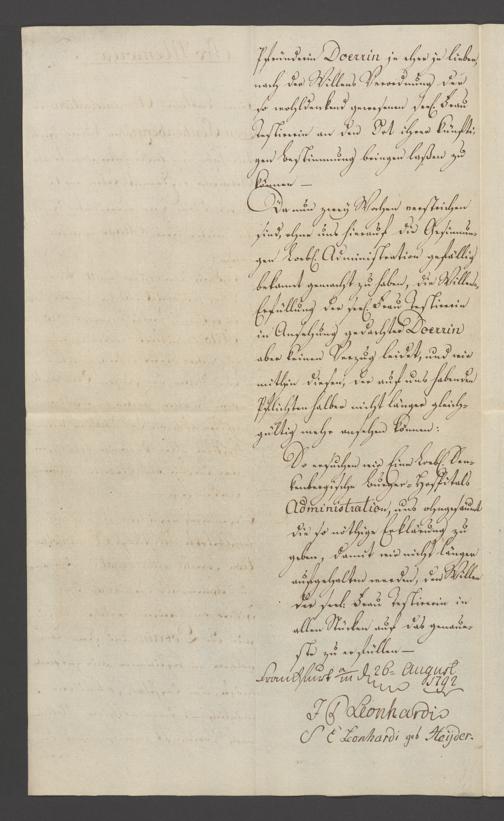 Pfründerin Doerrin je eher je lieber,
nach der Willens Verordnung der
so wohldenkend gewesenen seel. Frau
Testiererin an den Ort ihrer künfti-
gen Bestimmung bringen laßen zu
können —
Da nun zwey Wochen verstrichen
sind, ohne uns hierauf die Gesinnun-
gen Löbl. Administration gefällig
bekant gemacht zu haben, die Willens-
Erfüllung der seel. Frau Testiererin
in Ansehung gedachter Doerrin
aber keinen Verzug leidet, und wir
mithin diesen, der auf uns habenden
Pflichten halber nicht länger gleich-
gültig mehr ansehen können:
So ersuchen wir Eine Löbl. Sen-
kenbergische Burger-Hospitals
Administration, uns ohngesäumt
die so nöthige Erklärung zu
geben, damit wir nicht länger
aufgehalten werden, den Willen
der seel. Frau Testiererin in
allen Stücken auf das genaue-
ste zu erfüllen —
Franckfurt a/m d. 26. August
1792
J P Leonhardi
S E Leonhardi geb Heyder.